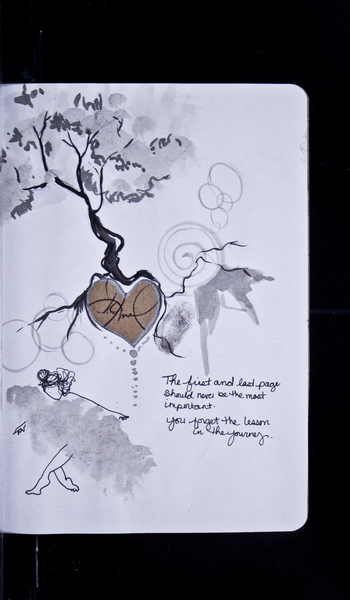 The first and last page
should never be the most
important.
you forget the lesson
in the journey.